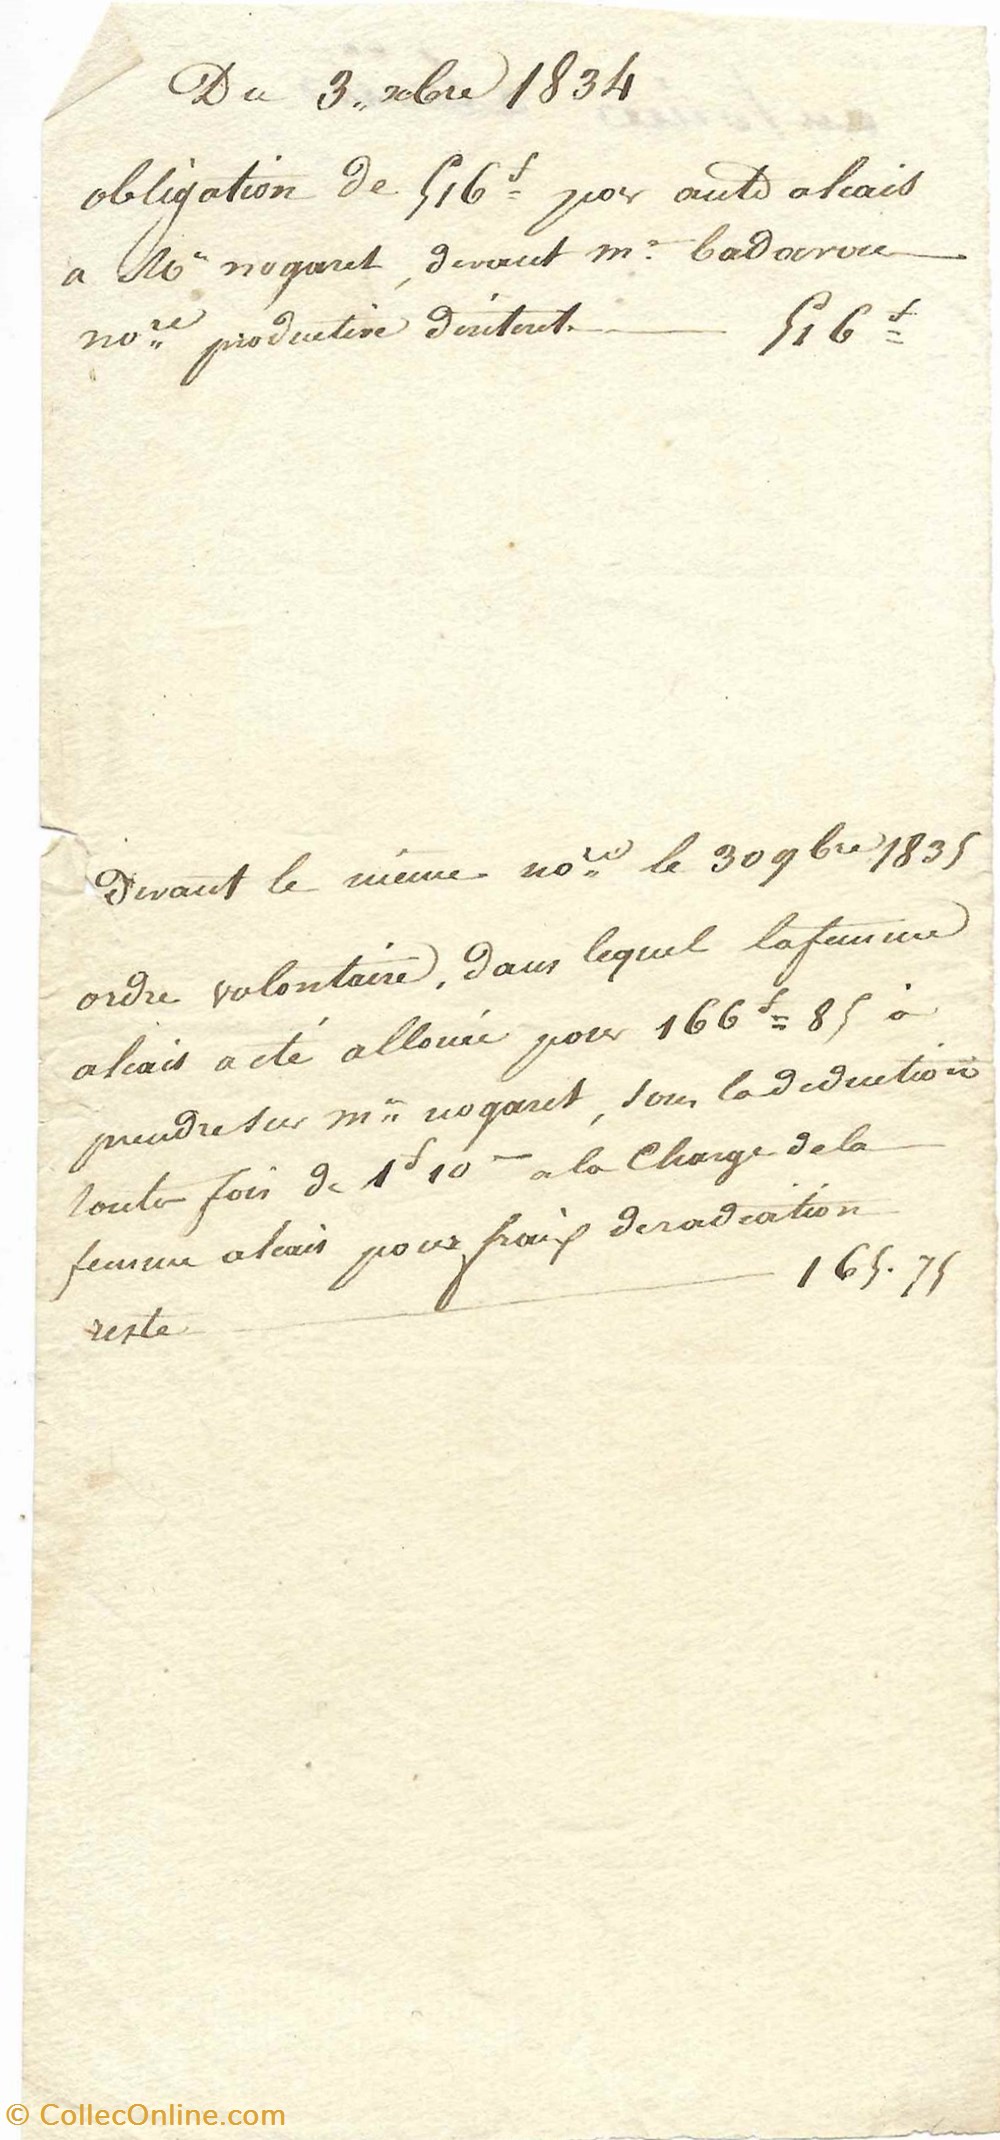 Du 3.. xbre 1834
obligation de 516 f par anto alcais
a Mr nogaret, devant mr. Cadavou
nore productive d'interet. 516 f
Devant le même nore le 30 9bre 1835
ordre volontaire, dans lequel la femme
alcais a eté allouée pour 166 f = 85 à
prendre sur mr nogaret, sous la deduction
toute fois de 1 f 10 a la Charge de la
femme alcais pour fraix de radiation
reste 165.75
© CollecOnline.com